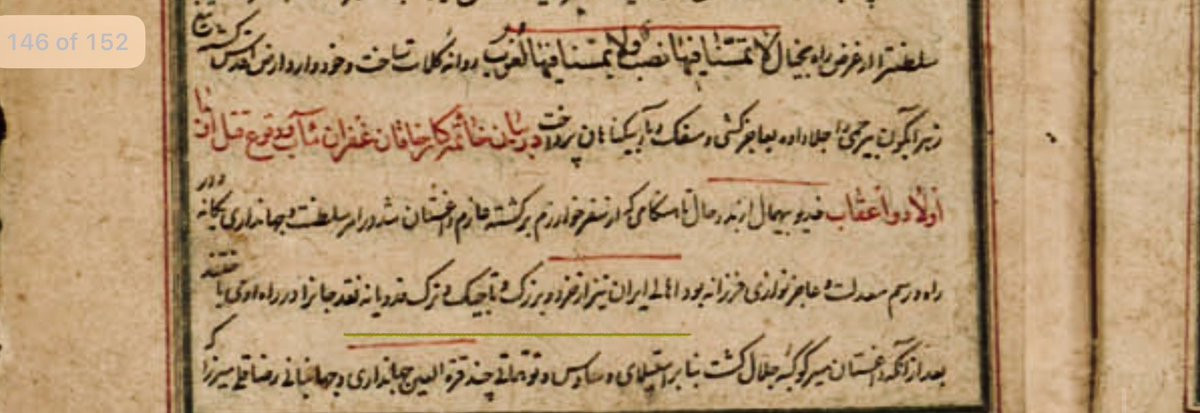 146 of 152
سلطنت را از غرض راه بخیال لا یمسنا فیها نصب ولا یمسنا فیها لغوب روانه کلات ساخت و خود وارد ارض اقدس گشته تیغ
زهر آبگون بیرحمی را جلا داده بعاجزکشی و سفک دماء بیگناهان پرداخت در بیان خاتمه کار خاقان غفران مآب و وقوع قتل او با
اولاد و اعقاب خدیو بیهمال از بدو حال تا هنگامی که از سفر خوارزم برگشته عازم داغستان شد در امر سلطنت و جهانداری یگانه و در
راه و رسم معدلت و عاجز نوازی فرزانه بود اهالی ایران نیز از خرد و بزرگ و تاجیک و ترک فدویانه نقد جانرا در راه او می باختند
بعد از آنکه داغستان مسیر کوکبه جلال گشت بنا بر استیلای وساوس و توهماتی چند قرة العین جهانداری و جهانبانی رضا قلی میرزا را که